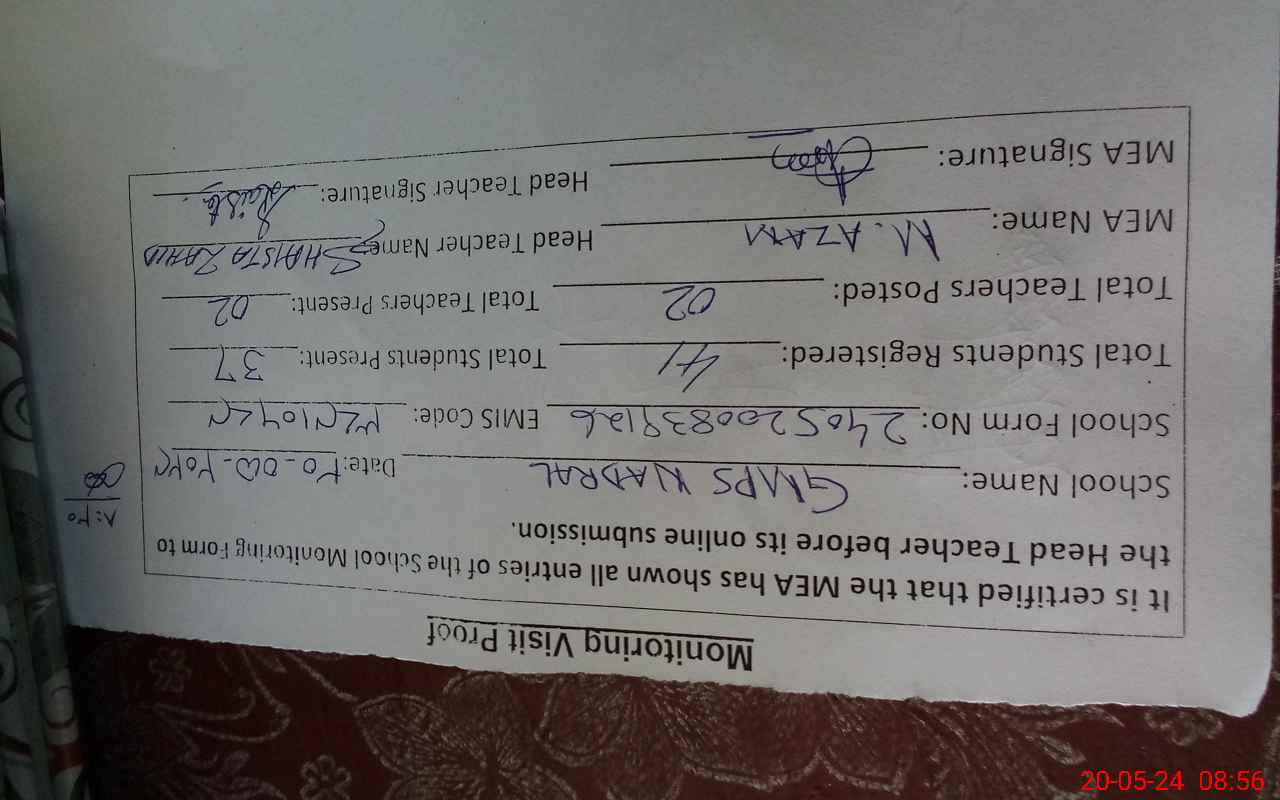 Monitoring Visit Proof
It is certified that the MEA has shown all entries of the School Monitoring Form to
the Head Teacher before its online submission.
School Name: GMPS Date: ۲۰-۰۵-۲۰۲۴
School Form No: 2405200839126 EMIS Code:
Total Students Registered: 41 Total Students Present: 37
Total Teachers Posted: 02 Total Teachers Present: 02
MEA Name: M. AZAM Head Teacher Name: SHAISTA ZAHID
MEA Signature: Head Teacher Signature: Shaista
20-05-24 08:56